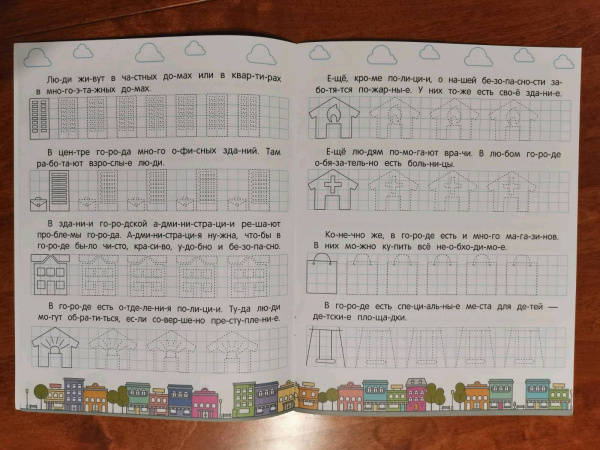 Лю-ди жи-вут в ча-стных до-мах или в квар-ти-рах
в мно-го-э-та-жных до-мах.
В цен-тре го-ро-да мно-го о-фи-сных зда-ний. Там
ра-бо-та-ют взро-слы-е лю-ди.
В зда-ни-и го-ро-дской а-дми-ни-стра-ци-и ре-ша-ют
про-бле-мы го-ро-да. А-дми-ни-стра-ци-я ну-жна, что-бы в
го-ро-де бы-ло чи-сто, кра-си-во, у-до-бно и бе-зо-па-сно.
В го-ро-де есть о-тде-ле-ни-я по-ли-ци-и. Ту-да лю-ди
мо-гут об-ра-ти-ться, ес-ли со-вер-ше-но пре-сту-пле-ни-е.
Е-щё, кро-ме по-ли-ци-и, о на-шей бе-зо-па-сно-сти за-
бо-тя-тся по-жар-ны-е. У них то-же есть сво-ё зда-ни-е.
Е-щё лю-дям по-мо-га-ют вра-чи. В лю-бом го-ро-де
о-бя-за-тель-но есть боль-ни-цы.
Ко-не-чно же, в го-ро-де есть и мно-го ма-га-зи-нов.
В них мо-жно ку-пить всё не-о-бхо-ди-мо-е.
В го-ро-де есть спе-ци-аль-ны-е ме-ста для де-тей —
де-тски-е пло-ща-дки.